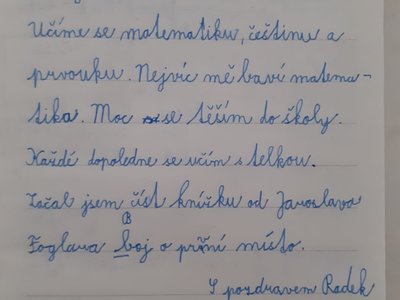 Učíme se matematiku, češtinu a
prvouku. Nejvíc mě baví matema-
tika. Moc se těším do školy.
Každé dopoledne se učím s telkou.
Začal jsem číst knížku od Jaroslava
B
Foglara boj o první místo.
S pozdravem Radek